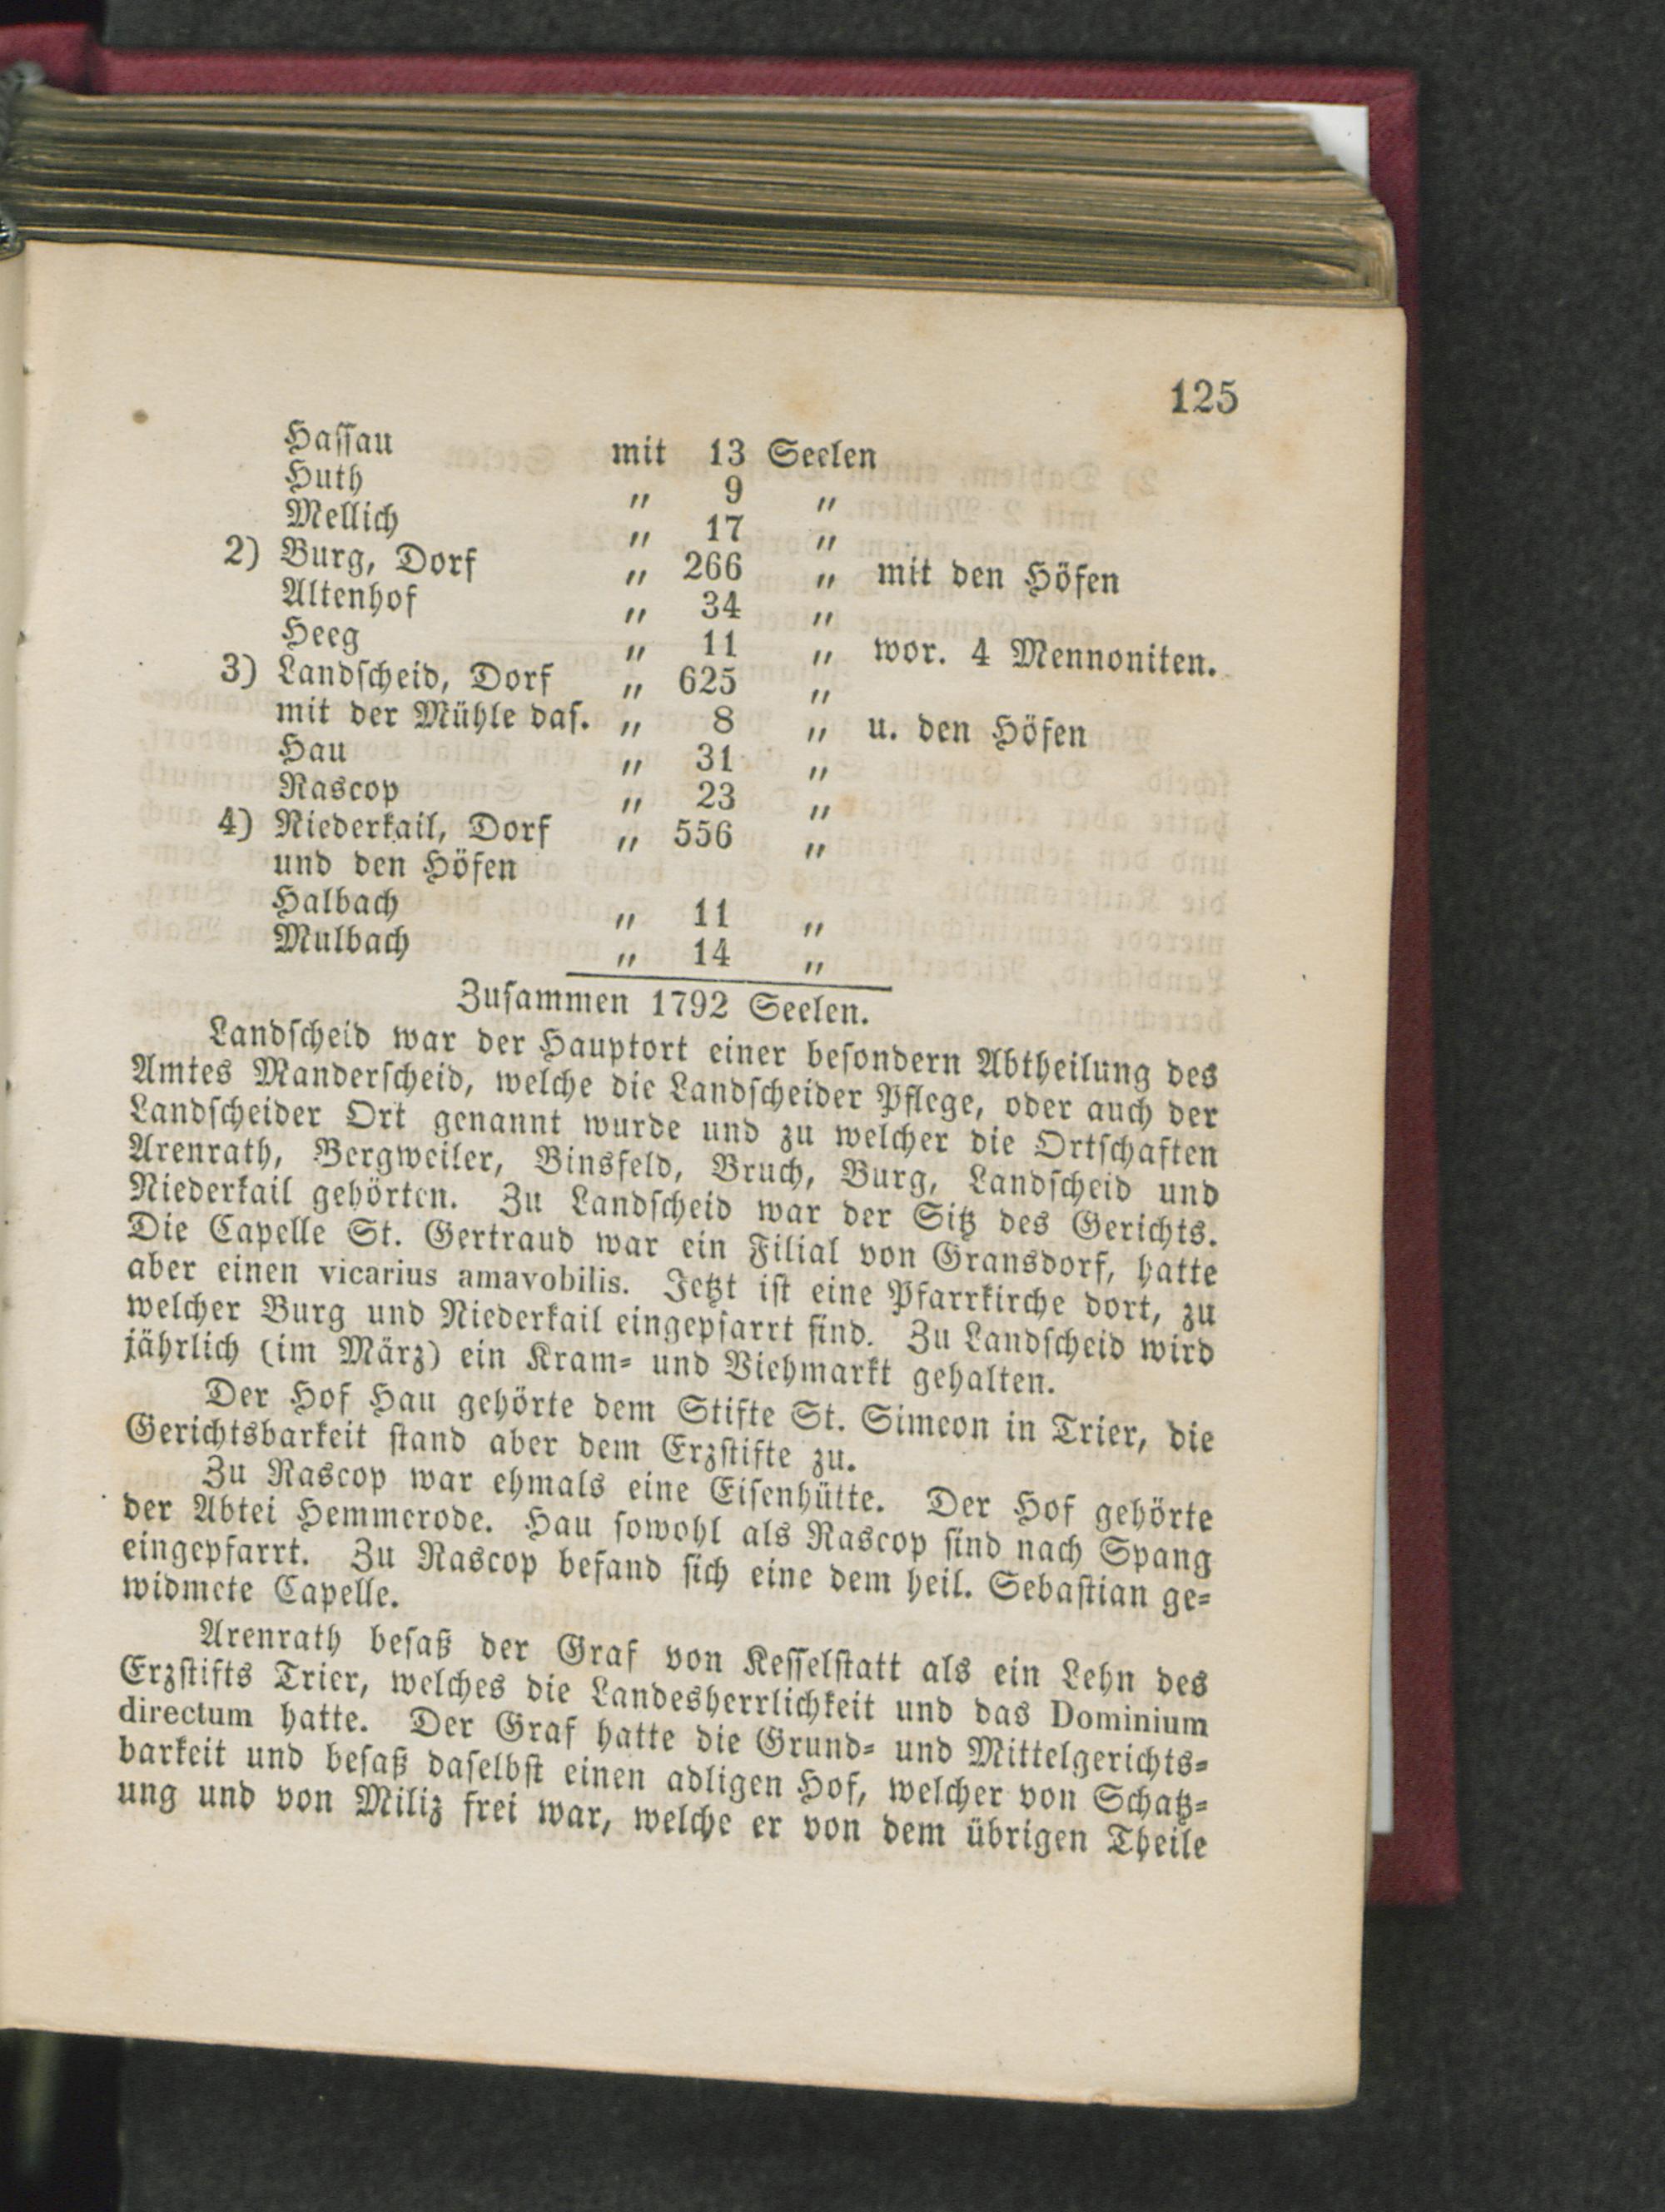 125
Hassau mit 13 Seelen
Huth " 9 "
Mellich " 17 "
2) Burg, Dorf " 266 " mit den Höfen
Altenhof " 34 "
Heeg " 11 " wor. 4 Mennoniten.
3) Landscheid, Dorf " 625 "
mit der Mühle das. " 8 " u. den Höfen
Hau " 31 "
Rascop " 23 "
4) Niederkail, Dorf " 556 "
und den Höfen
Halbach " 11 "
Mulbach " 14 "
Zusammen 1792 Seelen.
Landscheid war der Hauptort einer besondern Abtheilung des
Amtes Manderscheid, welche die Landscheider Pflege, oder auch der
Landscheider Ort genannt wurde und zu welcher die Ortschaften
Arenrath, Bergweiler, Binsfeld, Bruch, Burg, Landscheid und
Niederkail gehörten. Zu Landscheid war der Sitz des Gerichts.
Die Capelle St. Gertraud war ein Filial von Gransdorf, hatte
aber einen vicarius amavobilis. Jetzt ist eine Pfarrkirche dort, zu
welcher Burg und Niederkail eingepfarrt sind. Zu Landscheid wird
jährlich (im März) ein Kram- und Viehmarkt gehalten.
Der Hof Hau gehörte dem Stifte St. Simeon in Trier, die
Gerichtsbarkeit stand aber dem Erzstifte zu.
Zu Rascop war ehmals eine Eisenhütte. Der Hof gehörte
der Abtei Hemmerode. Hau sowohl als Rascop sind nach Spang
eingepfarrt. Zu Rascop befand sich eine dem heil. Sebastian ge-
widmete Capelle.
Arenrath besaß der Graf von Kesselstatt als ein Lehn des
Erzstifts Trier, welches die Landesherrlichkeit und das Dominium
directum hatte. Der Graf hatte die Grund- und Mittelgerichts-
barkeit und besaß daselbst einen adligen Hof, welcher von Schatz-
ung und von Miliz frei war, welche er von dem übrigen Theile